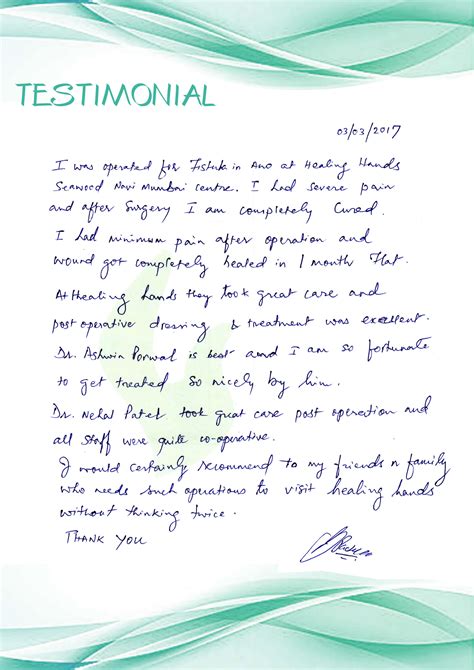 TESTIMONIAL
03/03/2017
I was operated for Fistula in Ano at Healing Hands
Seawood Navi Mumbai centre. I had severe pain
and after surgery I am completely cured.
I had minimum pain after operation and
wound got completely healed in 1 month flat.
At healing hands they took great care and
post operative dressing & treatment was excellent.
Dr. Ashwin Porwal is best and I am so fortunate
to get treated so nicely by him.
Dr. Nehal Patel took great care post operation and
all staff were quite co-operative.
I would certainly recommend to my friends n family
who needs such operations to visit healing hands
without thinking twice.
THANK YOU